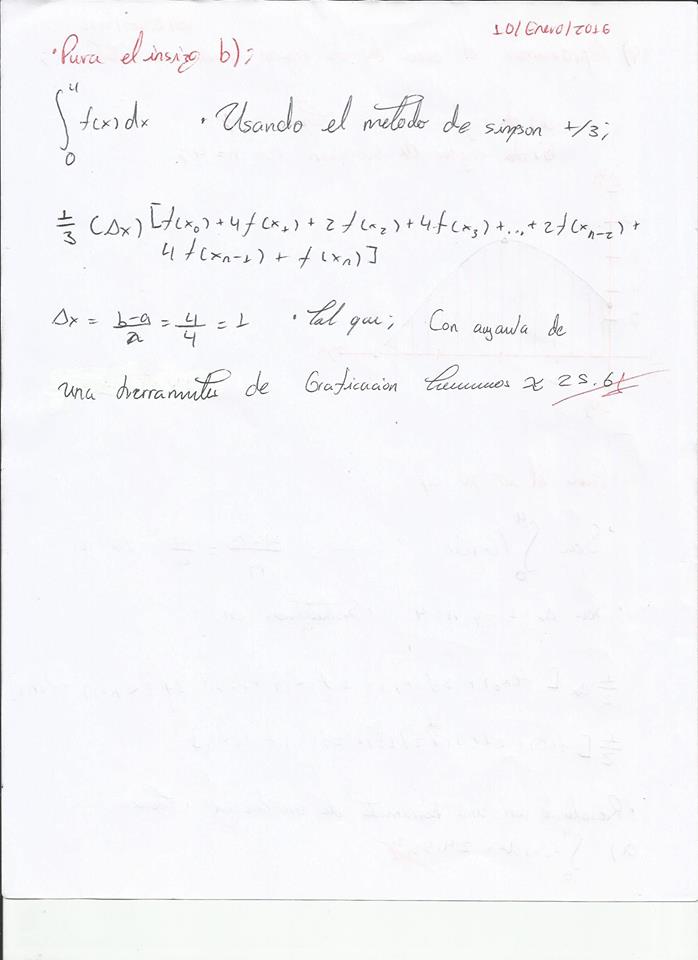 10/Enero/2016
• Para el insizo b);
∫₀⁴ f(x) dx • Usando el metodo de simpson 1/3;
1/3 (Δx) [f(x₀) + 4f(x₁) + 2f(x₂) + 4f(x₃) + ... + 2f(xₙ₋₂) +
4f(xₙ₋₁) + f(xₙ)]
Δx = b-a/n = 4/4 = 1 • Tal que; Con ayuda de
una herramienta de Graficacion tenemos ≈ 25.6